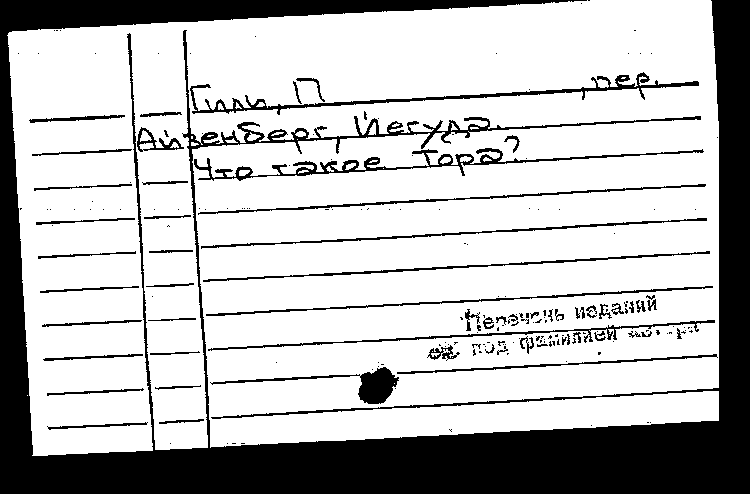 Гили, П , пер.
Айзенберг, Йегуда.
Что такое Тора?
Перечень изданий
см. под фамилией автора